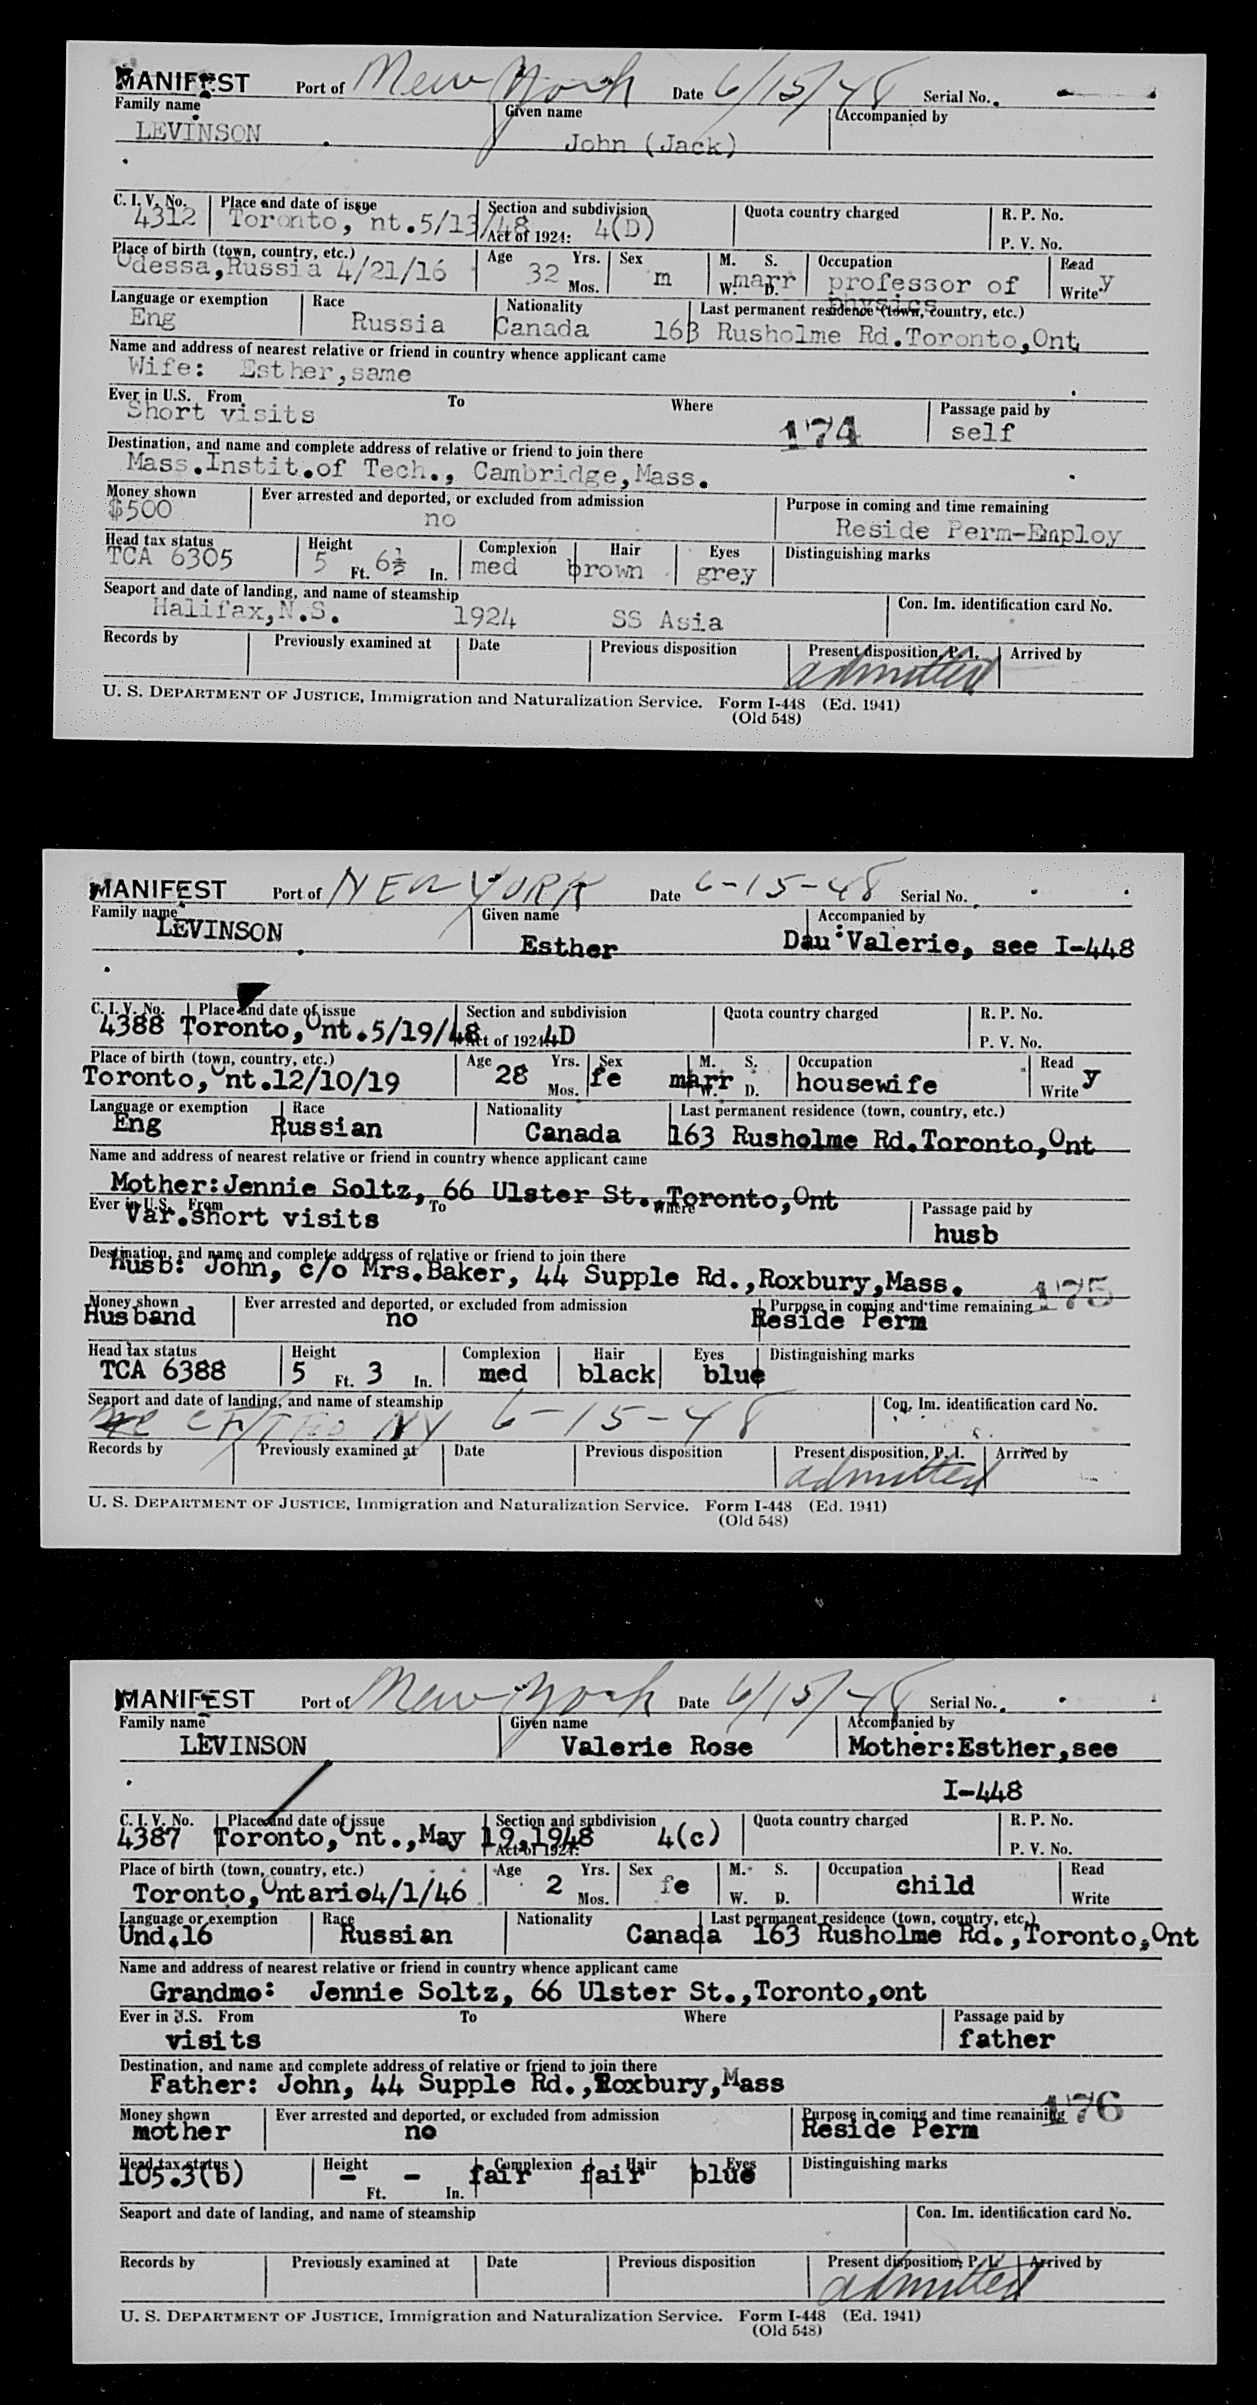 MANIFEST Port of New York Date 6/15/48 Serial No.
Family name Given name Accompanied by
LEVINSON John (Jack)
C. I. V. No. Place and date of issue Section and subdivision Quota country charged R. P. No.
4312 Toronto, Ont.5/13/48 Act of 1924: 4(D) P. V. No.
Place of birth (town, country, etc.) Age Yrs. Sex M. S. Occupation Read
Odessa,Russia 4/21/16 32 Mos. m W. marr D. professor of physics Write y
Language or exemption Race Nationality Last permanent residence (town, country, etc.)
Eng Russia Canada 163 Rusholme Rd.Toronto,Ont
Name and address of nearest relative or friend in country whence applicant came
Wife: Esther,same
Ever in U.S. From To Where Passage paid by
Short visits 174 self
Destination, and name and complete address of relative or friend to join there
Mass.Instit.of Tech., Cambridge,Mass.
Money shown Ever arrested and deported, or excluded from admission Purpose in coming and time remaining
$500 no Reside Perm-Employ
Head tax status Height Complexion Hair Eyes Distinguishing marks
TCA 6305 5 Ft. 6½ In. med brown grey
Seaport and date of landing, and name of steamship Con. Im. identification card No.
Halifax,N.S. 1924 SS Asia
Records by Previously examined at Date Previous disposition Present disposition, P. I. Arrived by
admitted
U. S. DEPARTMENT OF JUSTICE, Immigration and Naturalization Service. Form I-448 (Ed. 1941)
(Old 548)
MANIFEST Port of NEW YORK Date 6-15-48 Serial No.
Family name Given name Accompanied by
LEVINSON Esther Dau:Valerie, see I-448
C. I. V. No. Place and date of issue Section and subdivision Quota country charged R. P. No.
4388 Toronto,Ont.5/19/48 Act of 1924: 4D P. V. No.
Place of birth (town, country, etc.) Age Yrs. Sex M. S. Occupation Read
Toronto,Ont.12/10/19 28 Mos. fe marr W. D. housewife Write y
Language or exemption Race Nationality Last permanent residence (town, country, etc.)
Eng Russian Canada 163 Rusholme Rd.Toronto,Ont
Name and address of nearest relative or friend in country whence applicant came
Mother:Jennie Soltz, 66 Ulster St.,Toronto,Ont
Ever in U.S. From To Where Passage paid by
Var.short visits husb
Destination, and name and complete address of relative or friend to join there
Husb: John, c/o Mrs.Baker, 44 Supple Rd.,Roxbury,Mass. 175
Money shown Ever arrested and deported, or excluded from admission Purpose in coming and time remaining
Husband no Reside Perm
Head tax status Height Complexion Hair Eyes Distinguishing marks
TCA 6388 5 Ft. 3 In. med black blue
Seaport and date of landing, and name of steamship Con. Im. identification card No.
NY 6-15-48
Records by Previously examined at Date Previous disposition Present disposition, P. I. Arrived by
admitted
U. S. DEPARTMENT OF JUSTICE, Immigration and Naturalization Service. Form I-448 (Ed. 1941)
(Old 548)
MANIFEST Port of New York Date 6/15/48 Serial No.
Family name Given name Accompanied by
LEVINSON Valerie Rose Mother:Esther,see
I-448
C. I. V. No. Place and date of issue Section and subdivision Quota country charged R. P. No.
4387 Toronto,Ont.,May 19,1948 Act of 1924: 4(c) P. V. No.
Place of birth (town, country, etc.) Age Yrs. Sex M. S. Occupation Read
Toronto,Ontario4/1/46 2 Mos. fe W. D. child Write
Language or exemption Race Nationality Last permanent residence (town, country, etc.)
Und.16 Russian Canada 163 Rusholme Rd.,Toronto,Ont
Name and address of nearest relative or friend in country whence applicant came
Grandmo: Jennie Soltz, 66 Ulster St.,Toronto,ont
Ever in U.S. From To Where Passage paid by
visits father
Destination, and name and complete address of relative or friend to join there
Father: John, 44 Supple Rd.,Roxbury,Mass
Money shown Ever arrested and deported, or excluded from admission Purpose in coming and time remaining 176
mother no Reside Perm
Head tax status Height Complexion Hair Eyes Distinguishing marks
105.3(b) - Ft. - In. fair fair blue
Seaport and date of landing, and name of steamship Con. Im. identification card No.
Records by Previously examined at Date Previous disposition Present disposition, P. I. Arrived by
admitted
U. S. DEPARTMENT OF JUSTICE, Immigration and Naturalization Service. Form I-448 (Ed. 1941)
(Old 548)